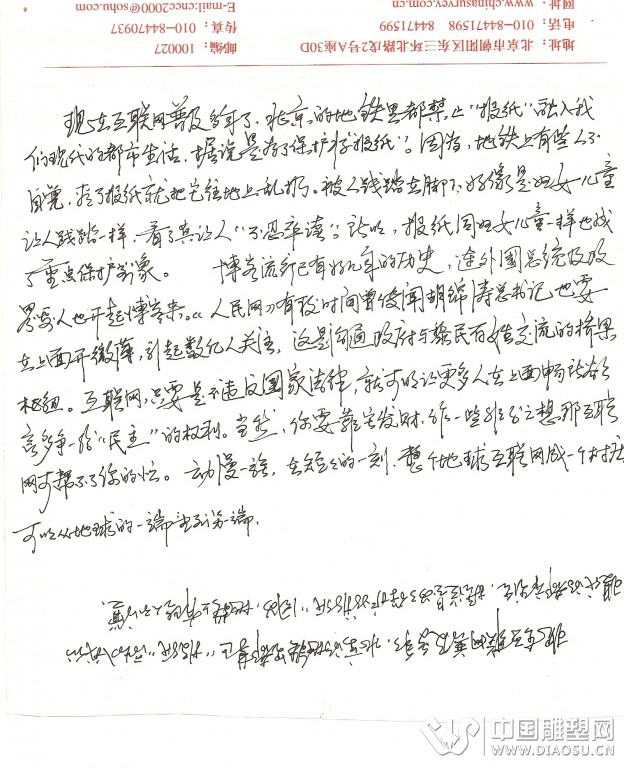 网址：www.chinasurvey.com.cn
E-mail:cncc2000@sohu.com
电话：010-84471598  84471599
传真：010-84470937
地址：北京市朝阳区东三环北路戊2号A座30D
邮编：100027
现在互联网普及多年了，北京的地铁里都禁止“报纸”融入我
们现代的都市生活，据说是为了保护“报纸”。因为，地铁上有些人不
自觉，看了报纸就把它往地上乱扔。被人践踏在脚下，好像是妇女儿童
让人践踏一样，看了真让人“不忍卒读”，所以，报纸同妇女儿童一样也成
了重点保护对象。 博客流行已有好几年的历史，连外国总统及政
界要人也开起博客来。《人民网》有段时间曾传闻胡锦涛总书记也要
在上面开微薄，引起数亿人关注，这是沟通政府与黎民百姓交流的桥梁
枢纽。互联网，只要是不违反国家法律，就可以让更多人在上面畅所欲
言多争一份“民主”的权利。当然，你要靠它发财，作一些非分之想，那互联
网可帮不了你的忙。 动漫一族，在短短的一刻，整个地球互联网成一个村庄
可以从地球的一端走到另一端.
中国雕塑网
WWW.DIAOSU.CN